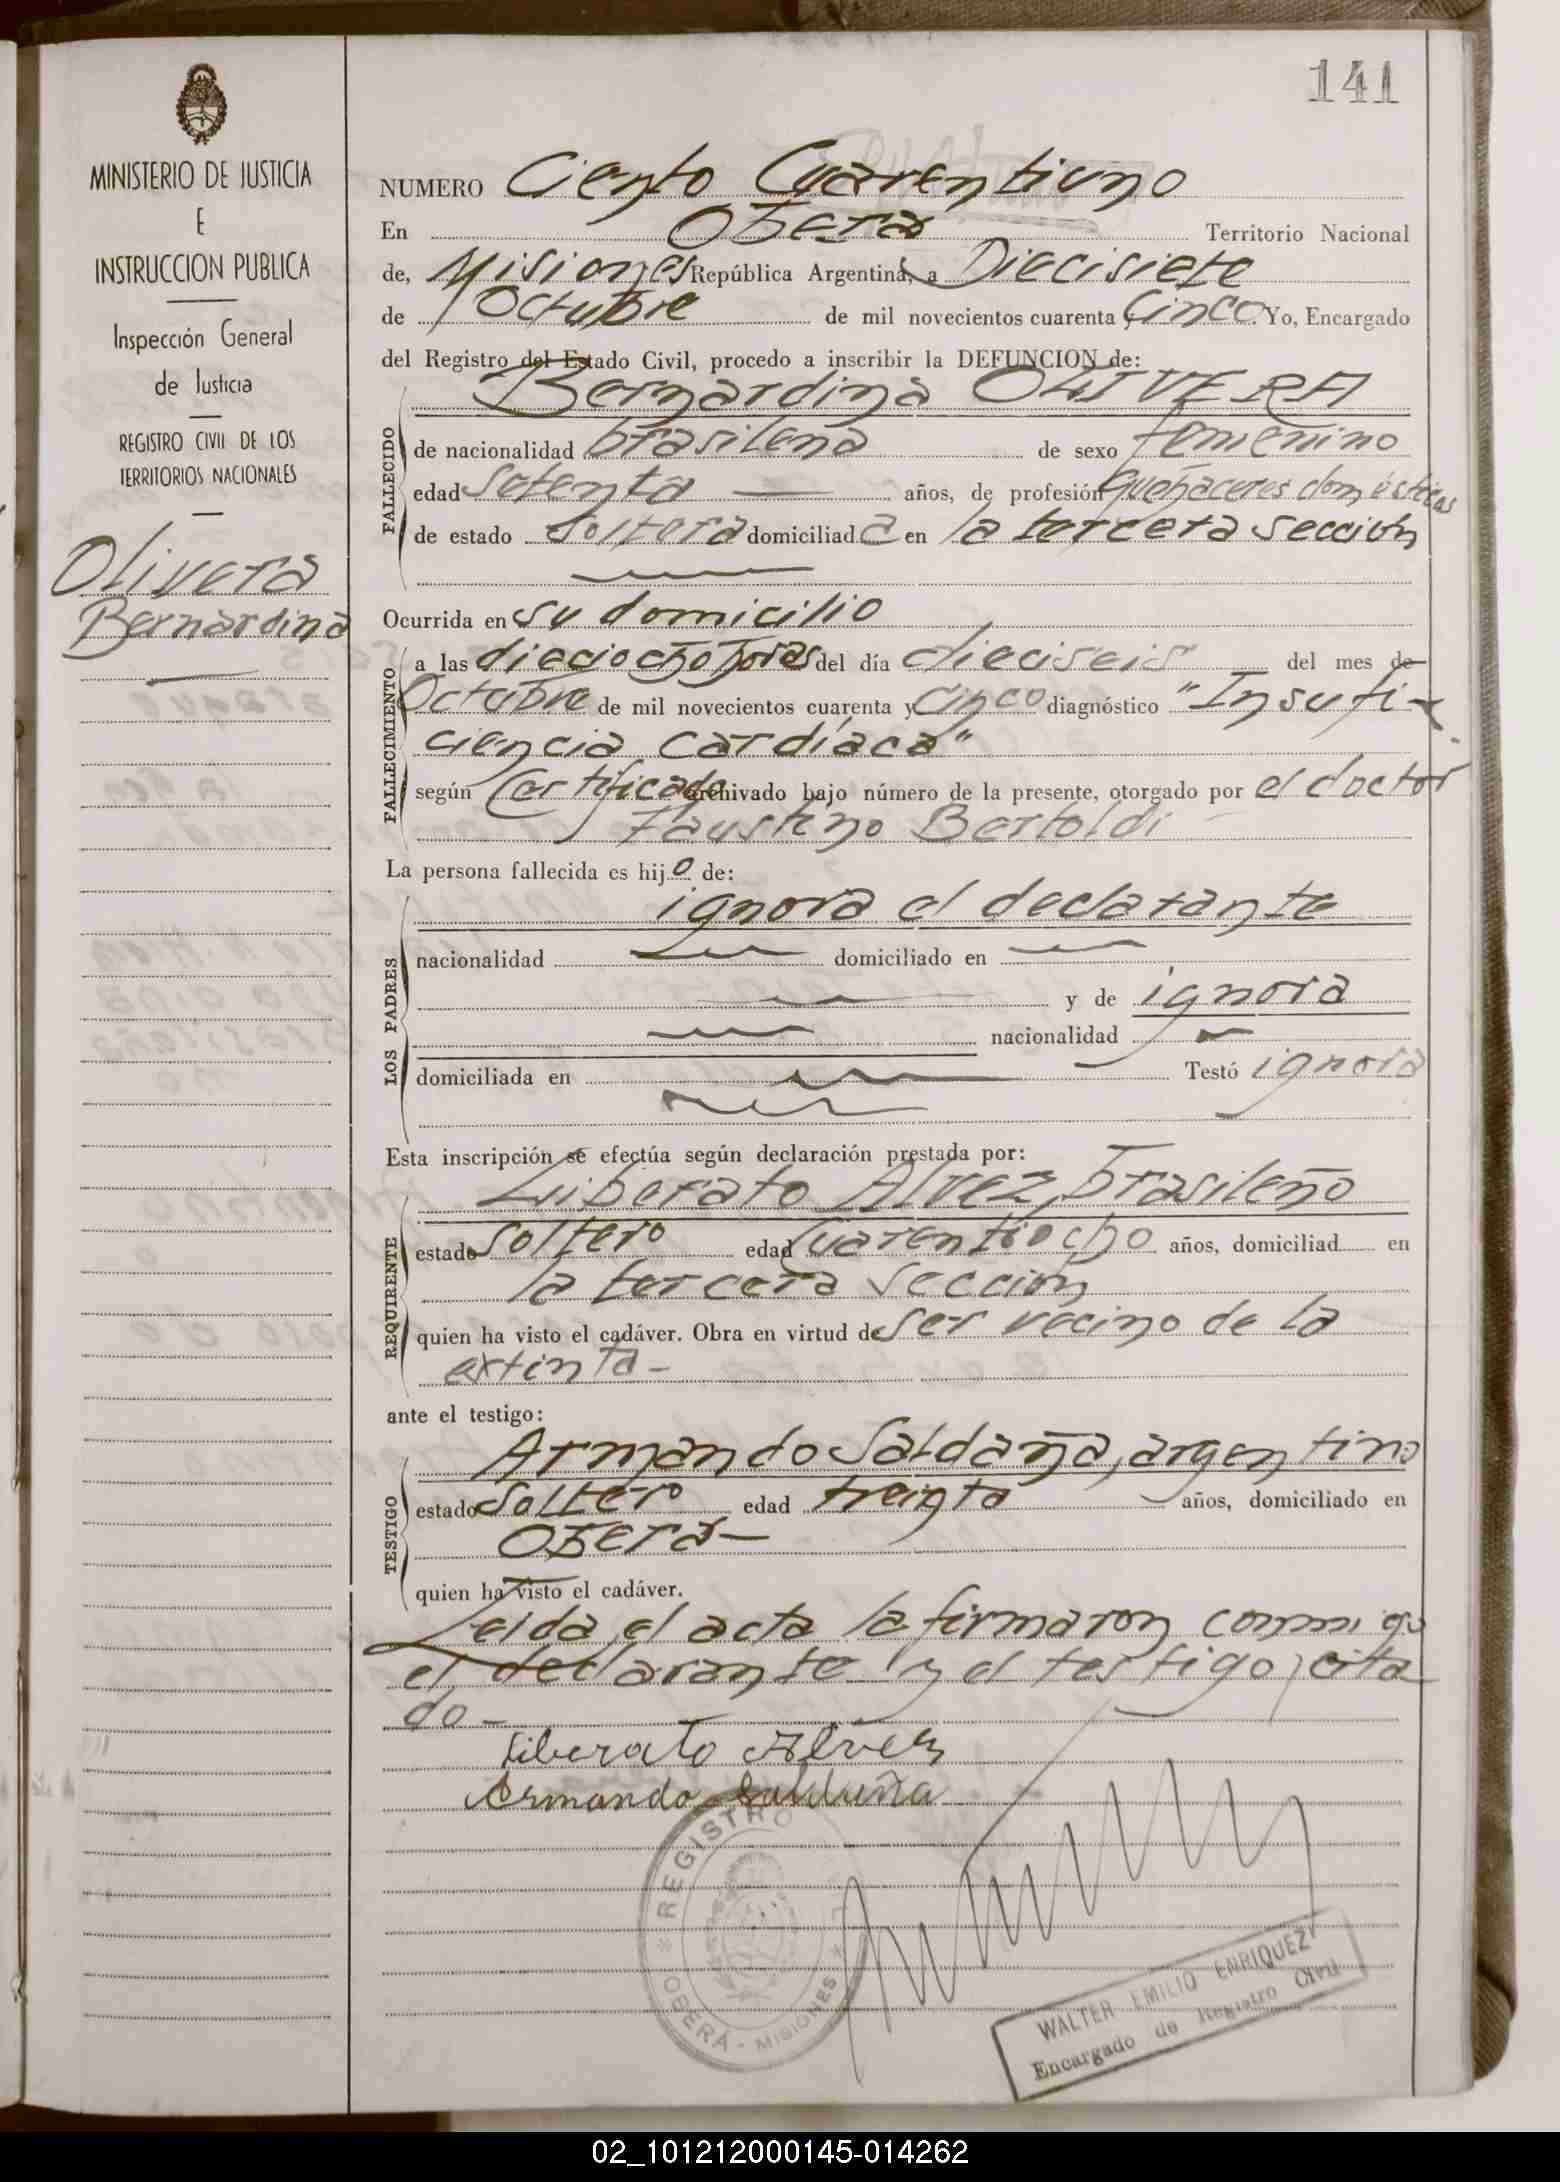 141
MINISTERIO DE JUSTICIA
E
INSTRUCCION PUBLICA
Inspección General
de Justicia
REGISTRO CIVIL DE LOS
TERRITORIOS NACIONALES
Olivera
Bernardina
NUMERO Ciento Cuarentiuno
En Oberá Territorio Nacional
de, Misiones República Argentina, a Diecisiete
de Octubre de mil novecientos cuarenta y Cinco. Yo, Encargado
del Registro del Estado Civil, procedo a inscribir la DEFUNCION de:
Bernardina OLIVERA
FALLECIDO
de nacionalidad brasileña de sexo femenino
edad Setenta años, de profesión quehaceres domésticos
de estado Soltera domiciliada en la tercera sección
Ocurrida en su domicilio
FALLECIMIENTO
a las dieciocho horas del día dieciseis del mes de
Octubre de mil novecientos cuarenta y Cinco diagnóstico "Insufi-
ciencia cardíaca"
según Certificado archivado bajo número de la presente, otorgado por el doctor
Faustino Bertoldi
La persona fallecida es hijo de:
LOS PADRES
ignora el declarante
nacionalidad domiciliado en
y de ignora
nacionalidad
domiciliada en Testó ignora
Esta inscripción se efectúa según declaración prestada por:
REQUIRENTE
Liberato Alvez, brasileño
estado Soltero edad Cuarentiocho años, domiciliad en
la tercera Sección
quien ha visto el cadáver. Obra en virtud de ser vecino de la
extinta-
ante el testigo:
TESTIGO
Armando Saldaña, argentino
estado Soltero edad treinta años, domiciliado en
Oberá-
quien ha visto el cadáver.
Leida el acta la firmaron conmigo
el declarante y el testigo cita
do-
Liberato Alvez
Armando Salduña
REGISTRO
OBERÁ - MISIONES
WALTER EMILIO ENRIQUEZ
Encargado de Registro Civil
02_101212000145-014262